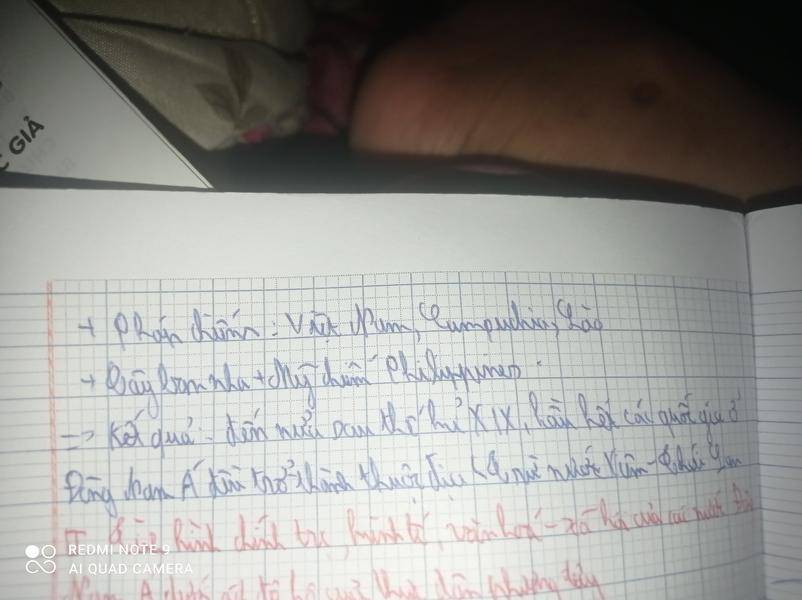 GIẢ
+ Pháp chiếm: Việt Nam, Campuchia, Lào
+ Tây ban nha + Mỹ chiếm Philippines.
=> Kết quả: đến nửa sau thế kỉ XIX, hầu hết các quốc gia ở
Đông Nam Á đều trở thành thuộc địa (trừ nước Xiêm - Thái Lan
hình chính trị, kinh tế, văn hoá - xã hội của các nước Đông
Nam Á dưới ách đô hộ của thực dân phương tây
REDMI NOTE 9
AI QUAD CAMERA